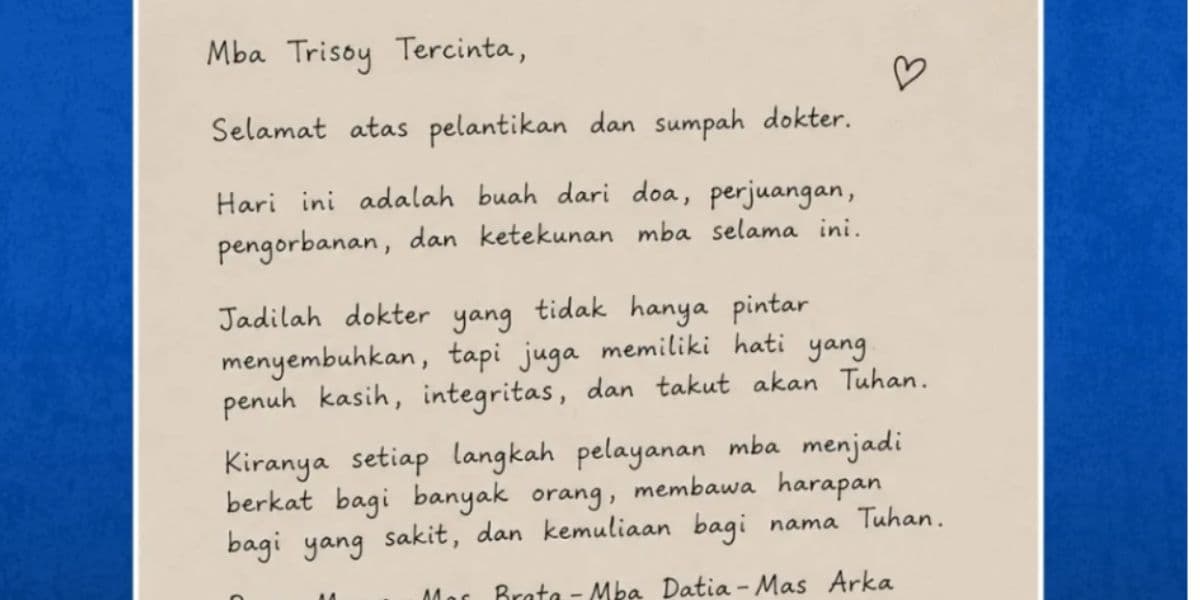 Mba Trisoy Tercinta,
Selamat atas pelantikan dan sumpah dokter.
Hari ini adalah buah dari doa, perjuangan,
pengorbanan, dan ketekunan mba selama ini.
Jadilah dokter yang tidak hanya pintar
menyembuhkan, tapi juga memiliki hati yang
penuh kasih, integritas, dan takut akan Tuhan.
Kiranya setiap langkah pelayanan mba menjadi
berkat bagi banyak orang, membawa harapan
bagi yang sakit, dan kemuliaan bagi nama Tuhan.
Mas Brata - Mba Datia - Mas Arka